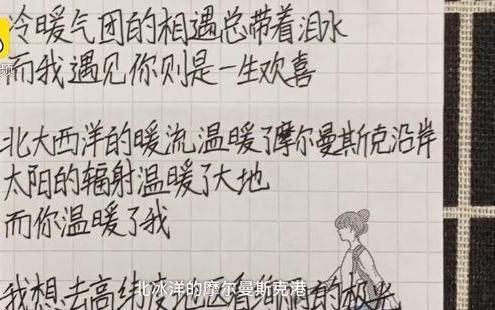 冷暖气团的相遇总带着泪水
而我遇见你则是一生欢喜
北大西洋的暖流温暖了摩尔曼斯克沿岸
太阳的辐射温暖了大地
而你温暖了我
我想去高纬度地区看绚丽的极光
北冰洋的摩尔曼斯克港
频